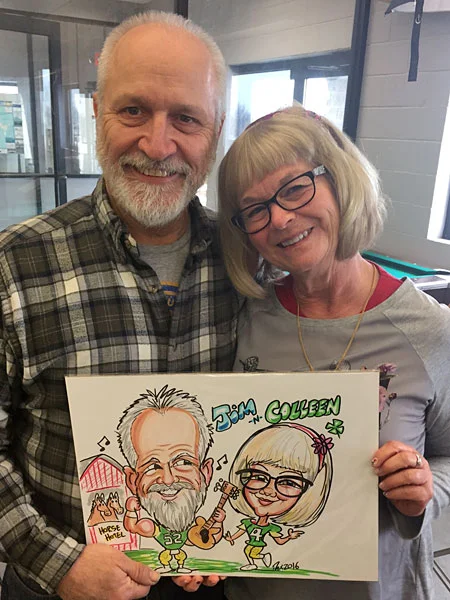 JIM -N- COLLEEN
HORSE
HOTEL
52
4